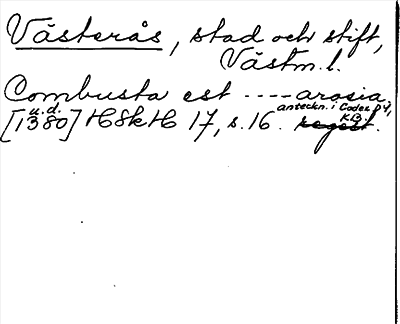 Västerås, stad och stift,
Västm.l.
Combusta est ---- arosia
u.d. anteckn. i Codex D 4,
[1380] HSkH 17, s. 16. regest. KB.